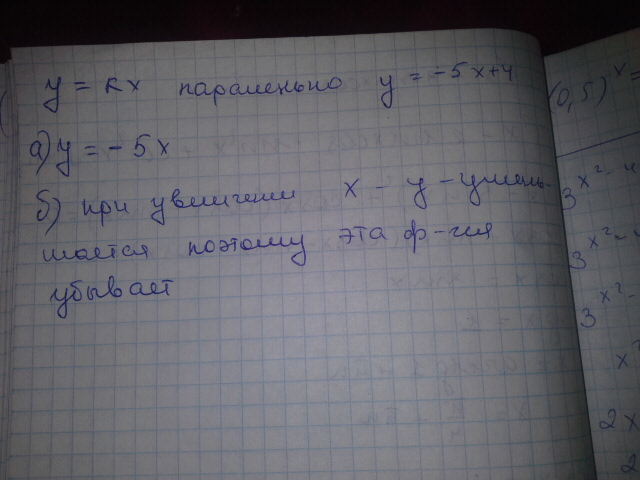 y = kx паралельно y = -5x+4
а) y = -5x
б) при увеличении x - y - умень-
шается поэтому эта ф-ция
убывает
(0,5)^x =
3^x²-4
3^x²-4
3^x²-
x²
2x
2